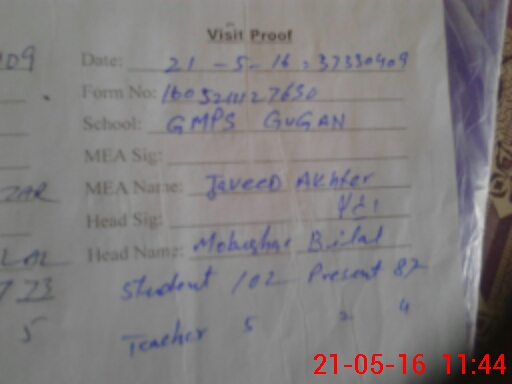 Visit Proof
109
Date: 21 - 5 - 16 : 37330409
Form No:
School: GMPS GUGAN
MEA Sig:
ZAR
MEA Name: Javeed Akhter
Head Sig:
LAL
Head Name: Mobushar Bilal
723
Student 102 Present 87
5
Teacher 5 2 4
21-05-16 11:44